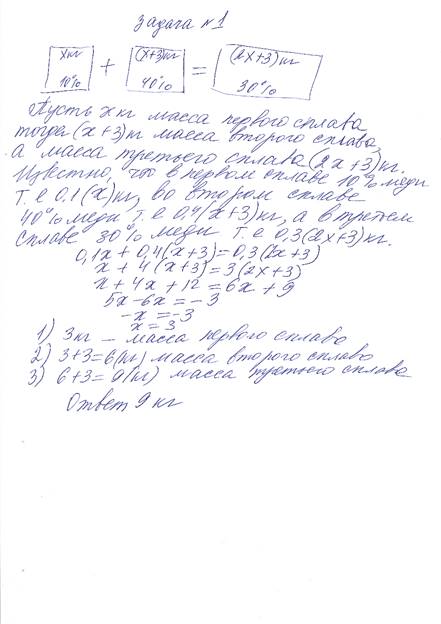 Задача №1
x кг (x+3) кг (2x+3) кг
+ =
10% 40% 30%
Пусть x кг масса первого сплава,
тогда (x+3) кг масса второго сплава,
а масса третьего сплава (2x+3) кг.
Известно, что в первом сплаве 10% меди
т.е 0,1(x) кг, во втором сплаве
40% меди т.е 0,4(x+3) кг, а в третьем
сплаве 30% меди т.е 0,3(2x+3) кг.
0,1x + 0,4(x+3) = 0,3(2x+3)
x + 4(x+3) = 3(2x+3)
x + 4x + 12 = 6x + 9
5x - 6x = -3
-x = -3
x = 3
1) 3 кг - масса первого сплава
2) 3+3=6(кг) масса второго сплава
3) 6+3=9(кг) масса третьего сплава
Ответ 9 кг